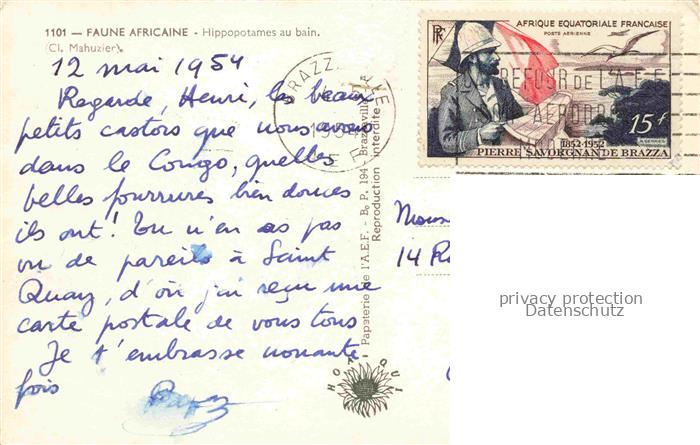 1101 — FAUNE AFRICAINE - Hippopotames au bain.
(Cl. Mahuzier).
12 mai 1954
Regarde, Henri, les beaux
petits castors que nous avons
dans le Congo, quelles
belles fourrures bien douces
ils ont! Tu n'en as pas
vu de pareils à Saint
Quay, d'où j'ai reçu une
carte postale de vous tous
Je t'embrasse nonante
fois
Papeterie de l'A.E.F. - B. P. 194 - Brazzaville
Reproduction interdite
HOA-QUI
BRAZZAVILLE
AFRIQUE EQUATORIALE FRANÇAISE
RF
POSTE AERIENNE
DE L'A.E.F
15f
1852-1952
PIERRE SAVORGNAN DE BRAZZA
14 R
privacy protection
Datenschutz